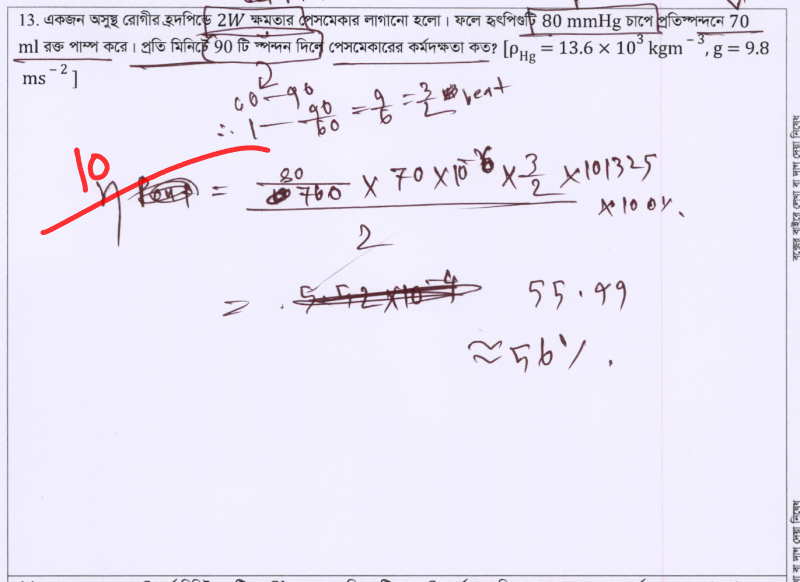 13. একজন অসুস্থ রোগীর হৃদপিন্ডে 2W ক্ষমতার পেসমেকার লাগানো হলো। ফলে হৃৎপিণ্ডটি 80 mmHg চাপে প্রতিস্পন্দনে 70
ml রক্ত পাম্প করে। প্রতি মিনিটে 90 টি স্পন্দন দিলে পেসমেকারের কর্মদক্ষতা কত? [ρHg = 13.6 × 10³ kgm⁻³, g = 9.8
ms⁻²]
60 — 90
∴ 1 — 90/60 = 9/6 = 3/2 beat
10
η = (80/760 × 70 × 10⁻⁶ × 3/2 × 101325)/2 × 100%
= 55.99
≈ 56%.
বক্সের বাইরে লেখা বা দাগ দেয়া নিষেধ
বা দাগ দেয়া নিষেধ